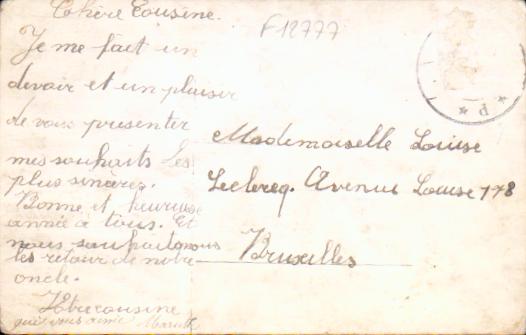 Cohère Cousine.
Je me fait un
devoir et un plaisir
de vous presenter
mes souhaits les
plus sincères.
Bonne et heureuse
année à tous. Et
nous souhaitons
les retour de notre
oncle.
Vtre cousine
qui vous aime
F12777
* d *
Mademoiselle Louise
Leclercq. Avenue Louise 178
Bruxelles